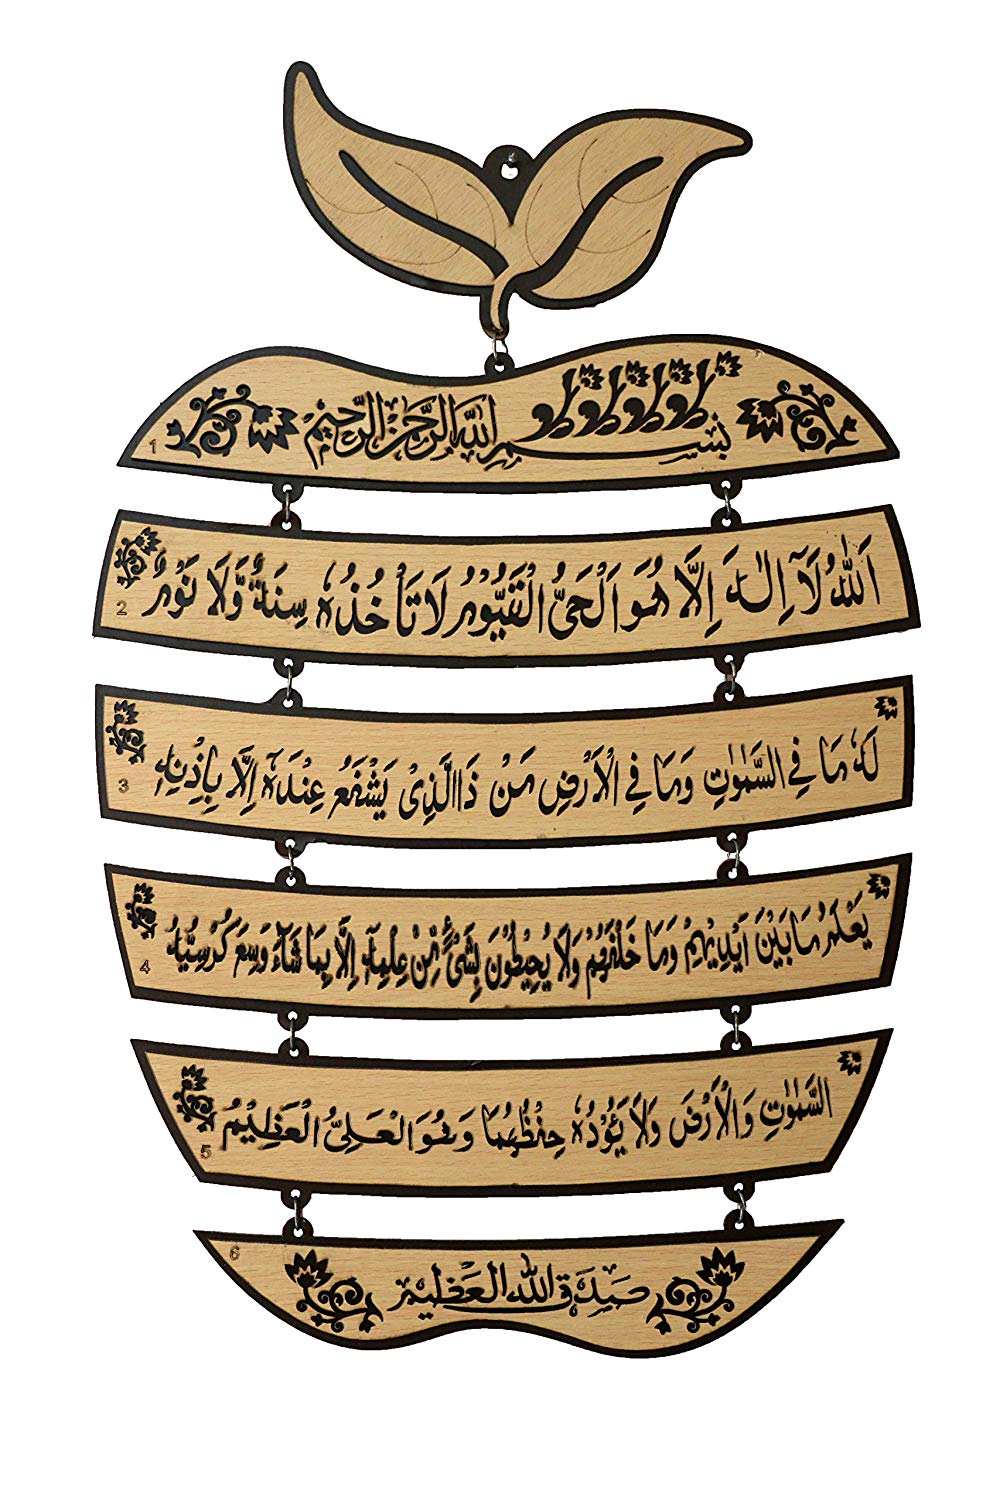 1
بِسْمِ اللهِ الرَّحْمٰنِ الرَّحِيْمِ
2
اَللّٰهُ لَآ اِلٰهَ اِلَّا هُوَ اَلْحَىُّ الْقَيُّوْمُ لَا تَأْخُذُهٗ سِنَةٌ وَّلَا نَوْمٌ
3
لَهٗ مَا فِي السَّمٰوٰتِ وَمَا فِي الْاَرْضِ مَنْ ذَا الَّذِىْ يَشْفَعُ عِنْدَهٗ اِلَّا بِاِذْنِهٖ
4
يَعْلَمُ مَا بَيْنَ اَيْدِيْهِمْ وَمَا خَلْفَهُمْ وَلَا يُحِيْطُوْنَ بِشَىْءٍ مِّنْ عِلْمِهٖٓ اِلَّا بِمَا شَآءَ وَسِعَ كُرْسِيُّهُ
5
السَّمٰوٰتِ وَالْاَرْضَ وَلَا يَـُٔوْدُهٗ حِفْظُهُمَا وَهُوَ الْعَلِىُّ الْعَظِيْمُ
6
صدق الله العظيم